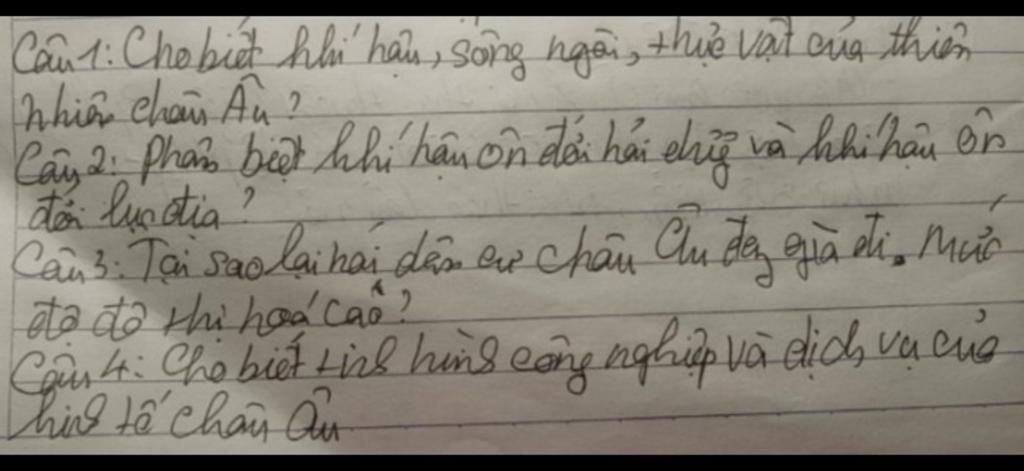 Câu 1: Cho biết khí hậu, sông ngòi, thực vật của thiên
nhiên châu Âu?
Câu 2: Phân biệt khí hậu ôn đới hải dương và khí hậu ôn
đới lục địa?
Câu 3: Tại sao lại nói dân cư châu Âu đang già đi. Mức
độ đô thị hoá cao?
Câu 4: Cho biết tình hình công nghiệp và dịch vụ của
kinh tế châu Âu